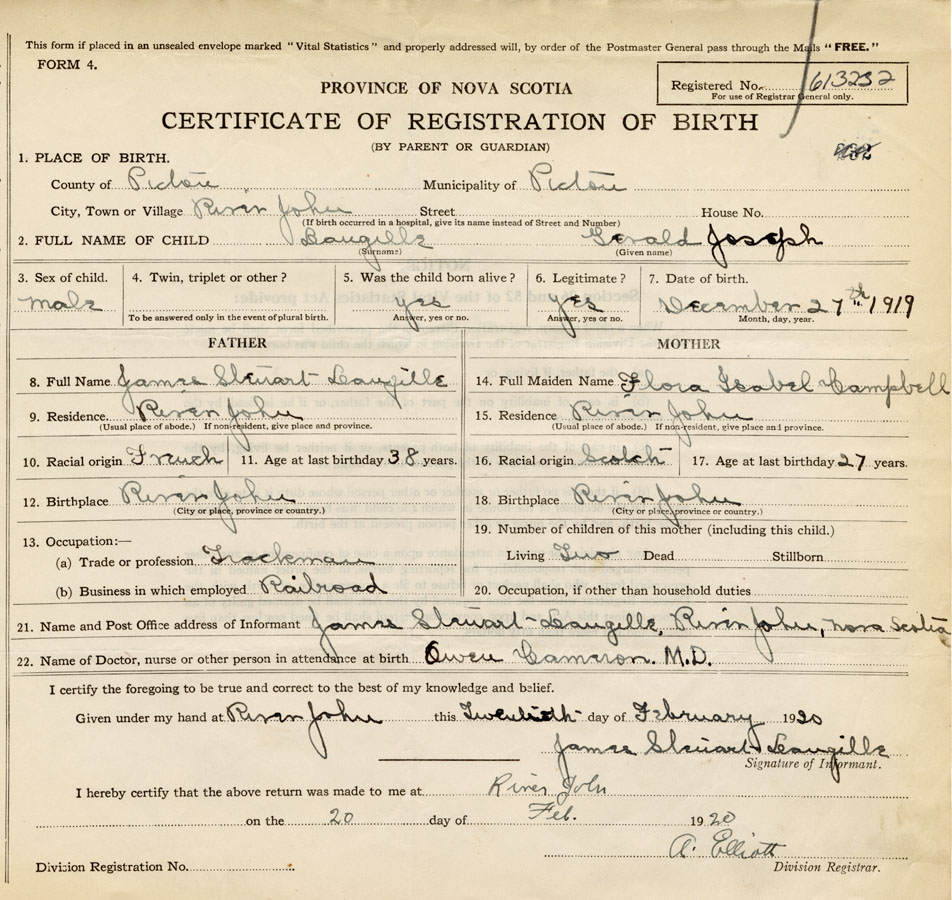 This form if placed in an unsealed envelope marked "Vital Statistics" and properly addressed will, by order of the Postmaster General pass through the Mails "FREE."
FORM 4.
Registered No. 613232
For use of Registrar General only.
PROVINCE OF NOVA SCOTIA
CERTIFICATE OF REGISTRATION OF BIRTH
(BY PARENT OR GUARDIAN)
1. PLACE OF BIRTH.
County of Pictou Municipality of Pictou
City, Town or Village River John Street House No.
(If birth occurred in a hospital, give its name instead of Street and Number)
2. FULL NAME OF CHILD Langille Gerald Joseph
(Surname) (Given name)
3. Sex of child. 4. Twin, triplet or other? 5. Was the child born alive? 6. Legitimate? 7. Date of birth.
male yes yes December 27th 1919
To be answered only in the event of plural birth. Answer, yes or no. Answer, yes or no. Month, day, year.
FATHER MOTHER
8. Full Name James Stewart Langille 14. Full Maiden Name Flora Isabel Campbell
9. Residence River John 15. Residence River John
(Usual place of abode.) If non-resident, give place and province. (Usual place of abode.) If non-resident, give place and province.
10. Racial origin French 11. Age at last birthday 38 years. 16. Racial origin Scotch 17. Age at last birthday 27 years.
12. Birthplace River John 18. Birthplace River John
(City or place, province or country.) (City or place, province or country.)
13. Occupation:— 19. Number of children of this mother (including this child.)
(a) Trade or profession Trackman Living Two Dead Stillborn
(b) Business in which employed Railroad 20. Occupation, if other than household duties
21. Name and Post Office address of Informant James Stewart Langille, River John, Nova Scotia
22. Name of Doctor, nurse or other person in attendance at birth Owen Cameron. M.D.
I certify the foregoing to be true and correct to the best of my knowledge and belief.
Given under my hand at River John this Twentieth day of February 1920
James Stewart Langille
Signature of Informant.
I hereby certify that the above return was made to me at River John
on the 20 day of Feb. 1920
A. Elliott
Division Registration No. Division Registrar.